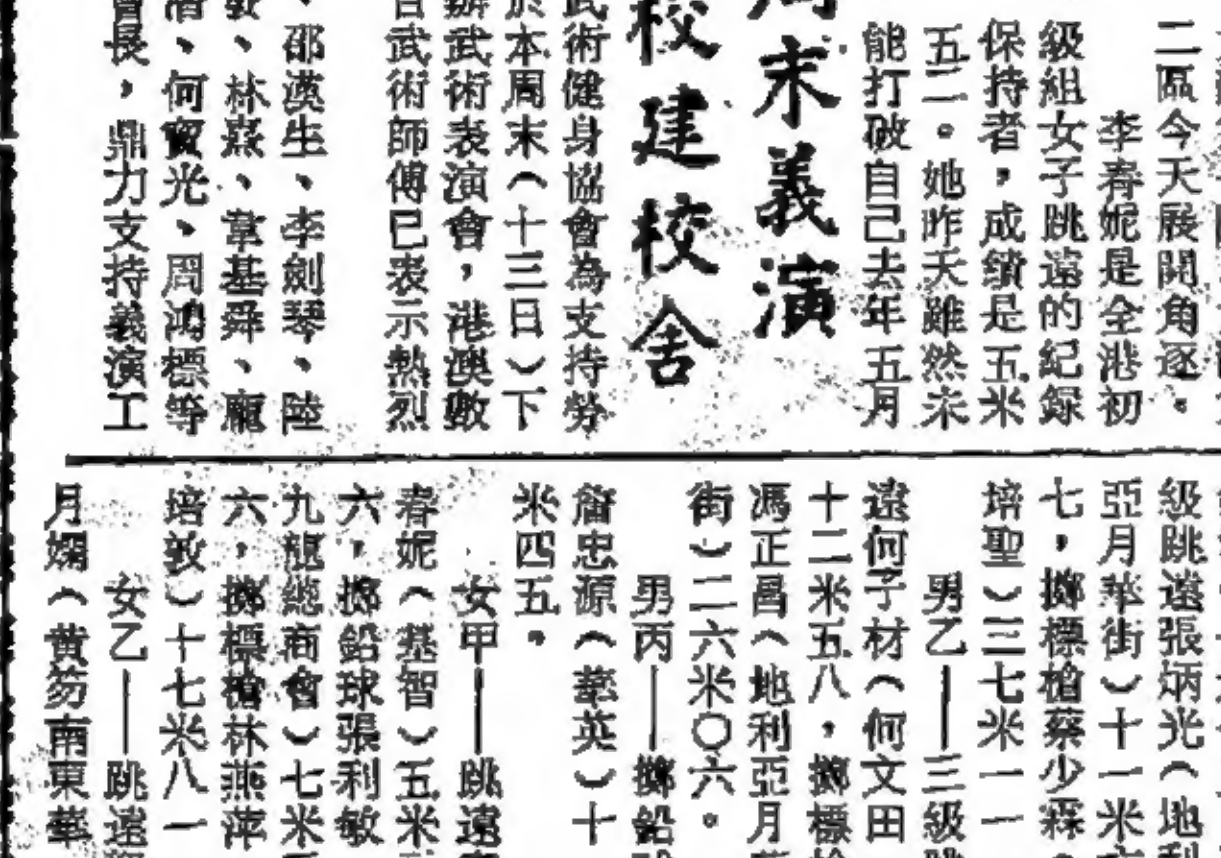 二區今天展開角逐。
李春妮是全港初
級組女子跳遠的紀錄
保持者，成績是五米
五二。她昨天雖然未
能打破自己去年五月
周末義演
校建校舍
武術健身協會為支持勞
於本周末（十三日）下
辦武術表演會，港澳數
武術師傅已表示熱烈
、邵漢生、李劍琴、陸
、林熹、韋基舜、龐
、何寶光、周鴻標等
會長，鼎力支持義演工
級跳遠張炳光（地利
亞月華街）十一米
七，擲標槍蔡少霖
培聖）三七米一一
男乙——三級跳
遠何子材（何文田
十二米五八，擲標槍
馮正昌（地利亞月
街）二六米〇六。
男丙——擲鉛球
詹忠源（華英）十
米四五。
女甲——跳遠
春妮（基智）五米
六，擲鉛球張利敏
九龍總商會）七米
六，擲標槍林燕萍
培敦）十七米八一
女乙——跳遠
月嫻（黃笏南東華